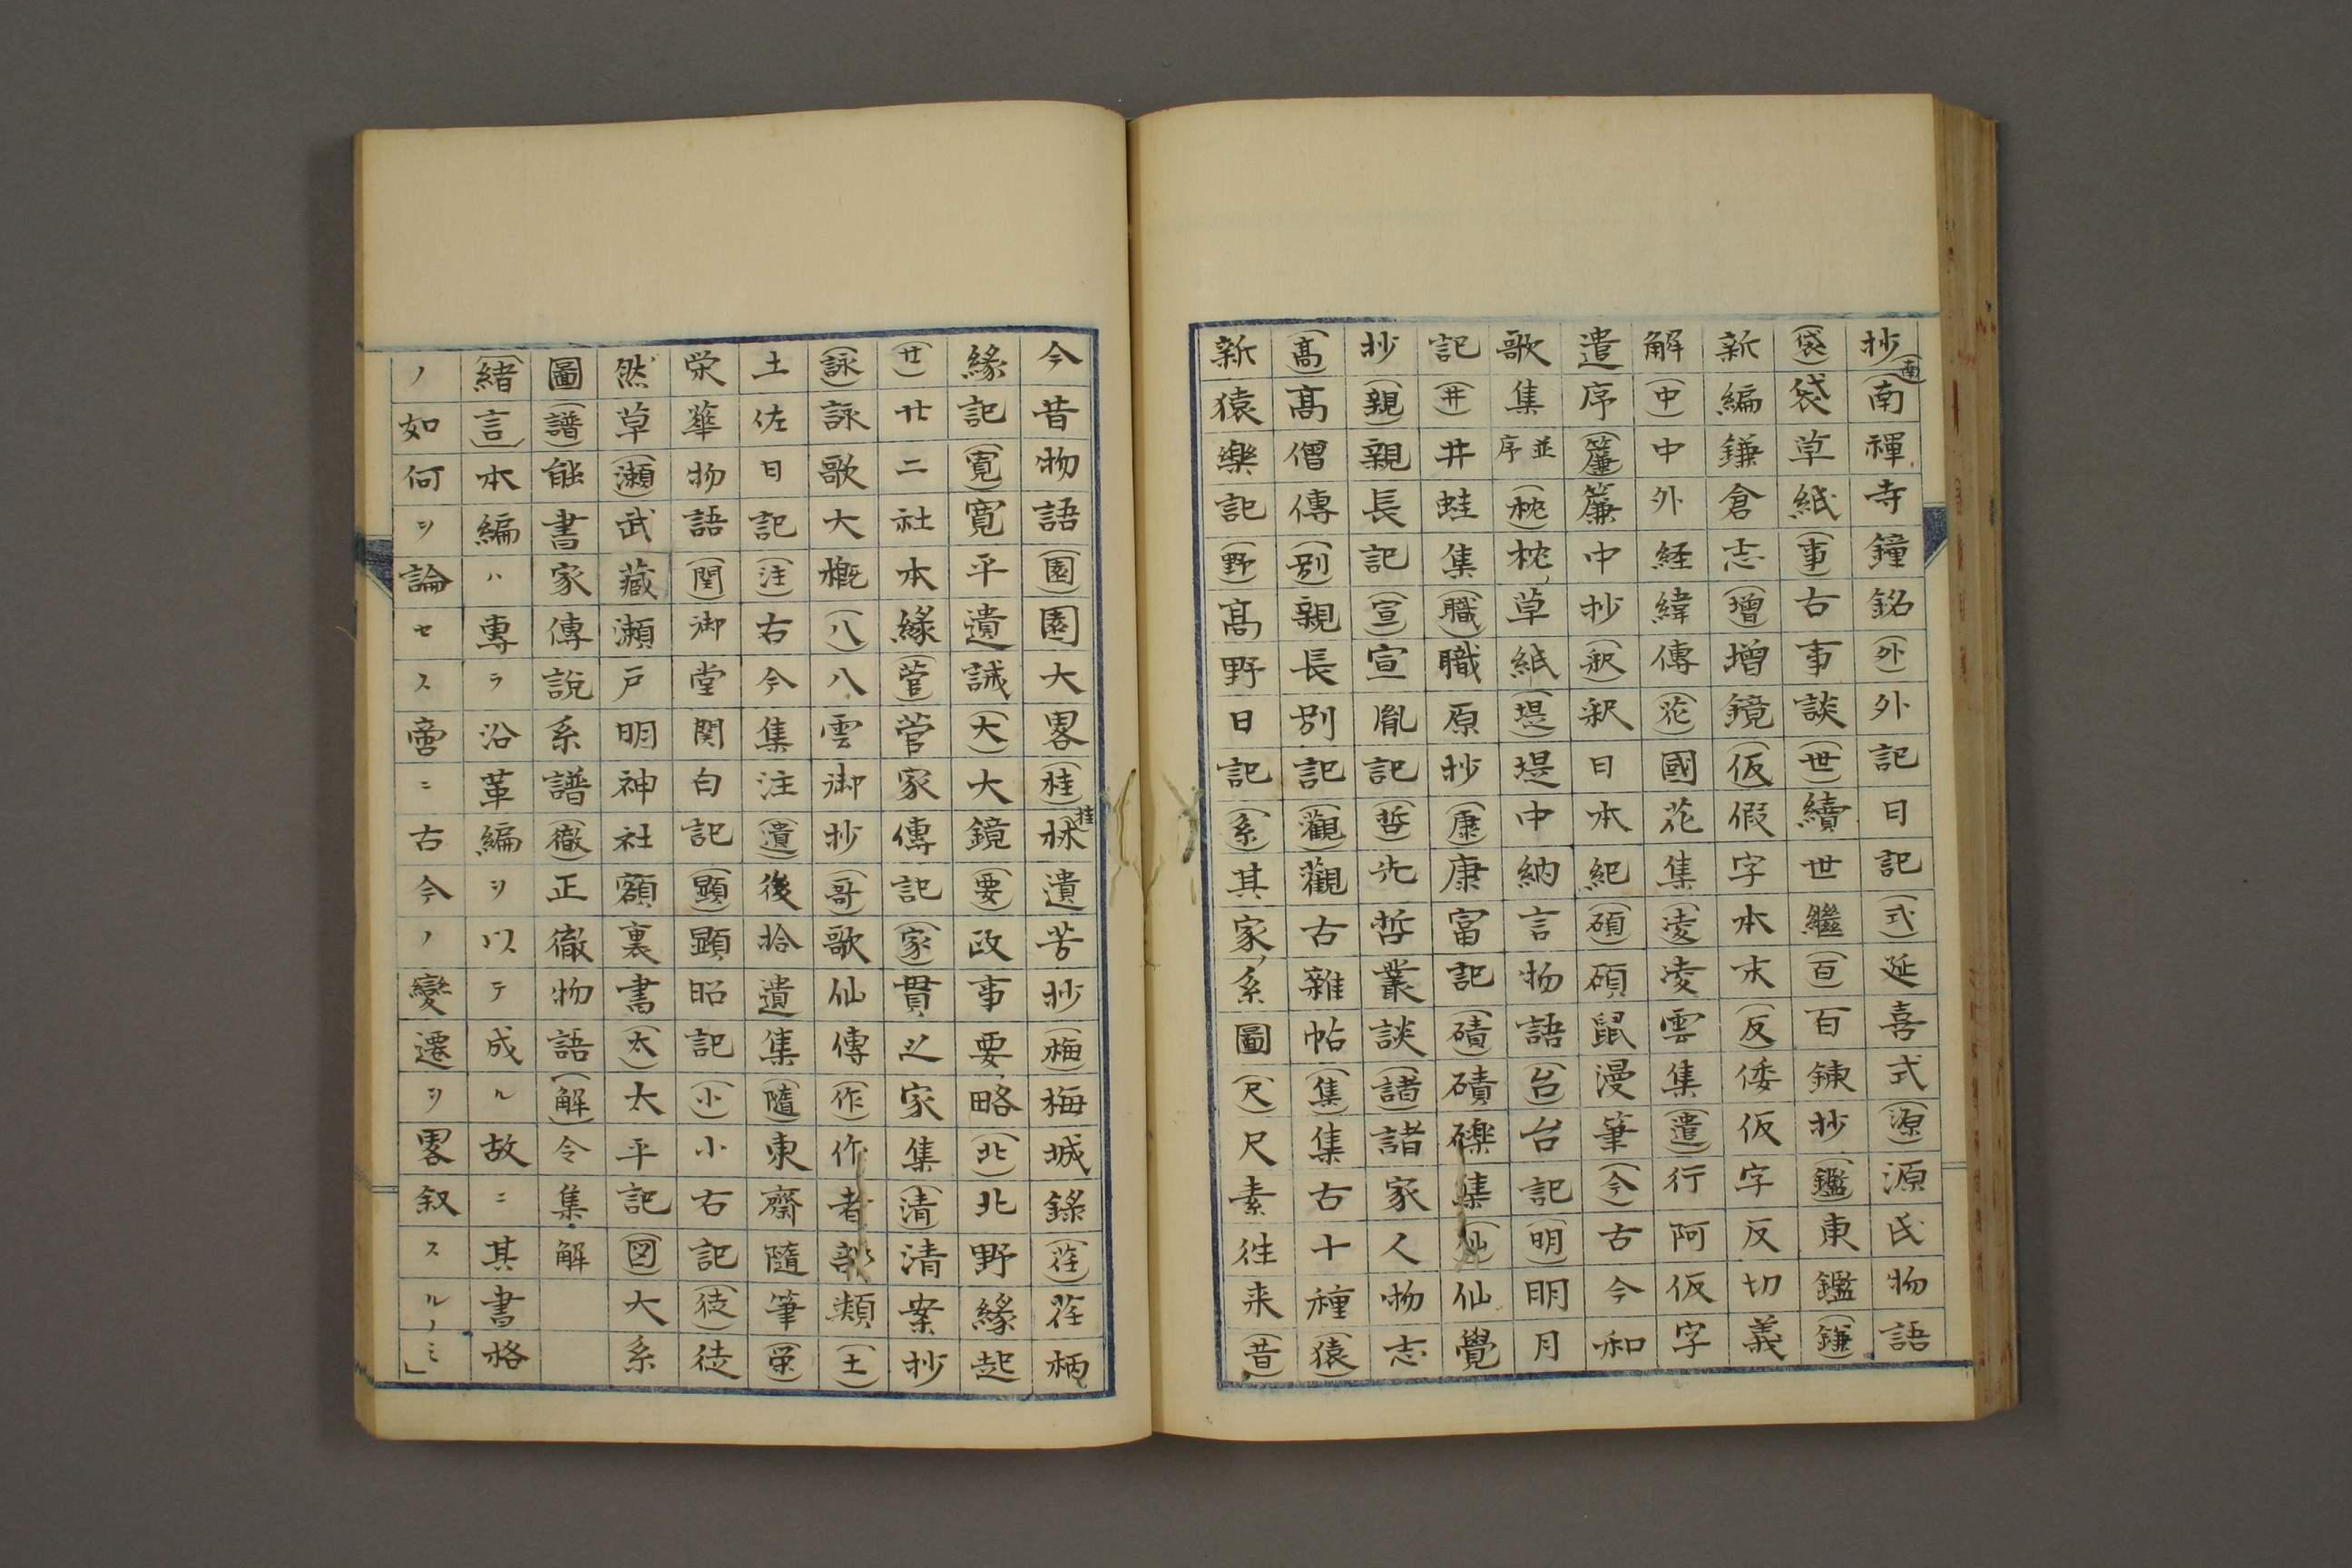 抄(南)南禪寺鐘銘(外)外記日記(式)延喜式(源)源氏物語
(袋)袋草紙(事)古事談(世)續世繼(百)百錬抄(鑑)東鑑(鎌)
新編鎌倉志(增)增鏡(仮)假字本末(反)倭仮字反切義
解(中)中外経緯傳(花)國花集(凌)凌雲集(遣)行阿仮字
遣序(簾)簾中抄(釈)釈日本紀(碩)碩鼠漫筆(今)古今和
歌集並序(枕)枕草紙(堤)堤中納言物語(台)台記(明)明月
記(井)井蛙集(職)職原抄(康)康富記(磧)磧礫集(仙)仙覺
抄(親)親長記(宣)宣胤記(哲)先哲叢談(諸)諸家人物志
(髙)髙僧傳(別)親長別記(觀)觀古雜帖(集)集古十種(猿)
新猿樂記(野)髙野日記(系)其家系圖(尺)尺素往来(昔)
今昔物語(園)園大畧(桂)桂林遺芳抄(梅)梅城錄(荏)荏柄
緣記(寛)寛平遺誡(大)大鏡(要)政事要略(北)北野緣起
(廿)廿二社本緣(菅)菅家傳記(家)貫之家集(清)清案抄
(詠)詠歌大概(八)八雲御抄(哥)歌仙傳(作)作者部類(土)
土佐日記(注)右今集注(遺)後拾遺集(隨)東齋隨筆(栄)
栄華物語(関)御堂関白記(顕)顕昭記(小)小右記(徒)徒
然草(瀬)武藏瀬戸明神社額裏書(太)太平記(図)大系
圖(譜)能書家傳說系譜(徹)正徹物語(解)令集解
(緒言)本編ハ專ラ沿革編ヲ以テ成ル故ニ其書格
ノ如何ヲ論セス啻ニ古今ノ變遷ヲ畧叙スルノミ」